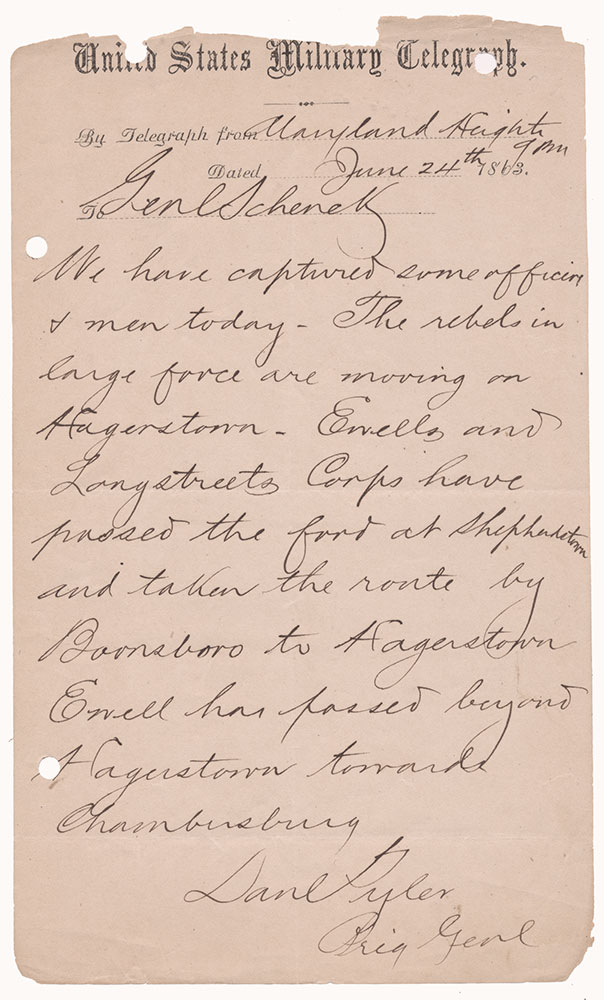 United States Military Telegraph.
By Telegraph from Maryland Heights
9 Pm
Dated June 24th 1863.
To Genl Schenck
We have captured some officers
& men today - The rebels in
large force are moving on
Hagerstown - Ewells and
Longstreets Corps have
passed the ford at Shepherdstown
and taken the route by
Boonsboro to Hagerstown
Ewell has passed beyond
Hagerstown towards
Chambersburg
Danl Tyler
Brig Genl